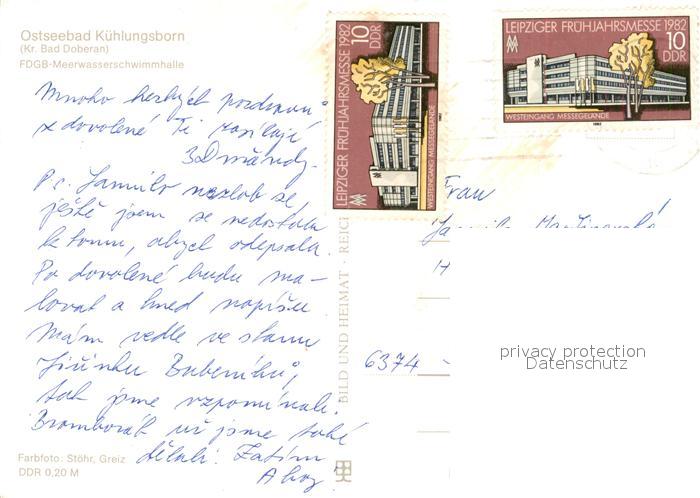 Ostseebad Kühlungsborn
(Kr. Bad Doberan)
FDGB-Meerwasserschwimmhalle
Mnoho hezkých pozdravů
z dovolené Ti zasílají
Ps. Jarmilo nezlob se
ještě jsem se nedostala
k tomu, abych odepsala.
Po dovolené budu ma-
lovat a hned napíšu
Mám vedle ve stanu
Jiřinku Bubeníků,
tak jsme vzpomínali.
Bramborák už jsme také
dělali. Zatím
Ahoj!
Farbfoto: Stöhr, Greiz
DDR 0,20 M
BILD UND HEIMAT · REIC
LEIPZIGER FRÜHJAHRSMESSE 1982
10
DDR
WESTEINGANG MESSEGELÄNDE
1982
LEIPZIGER FRÜHJAHRSMESSE 1982
10
DDR
WESTEINGANG MESSEGELÄNDE
1982
Frau
H
6374 -
privacy protection
Datenschutz